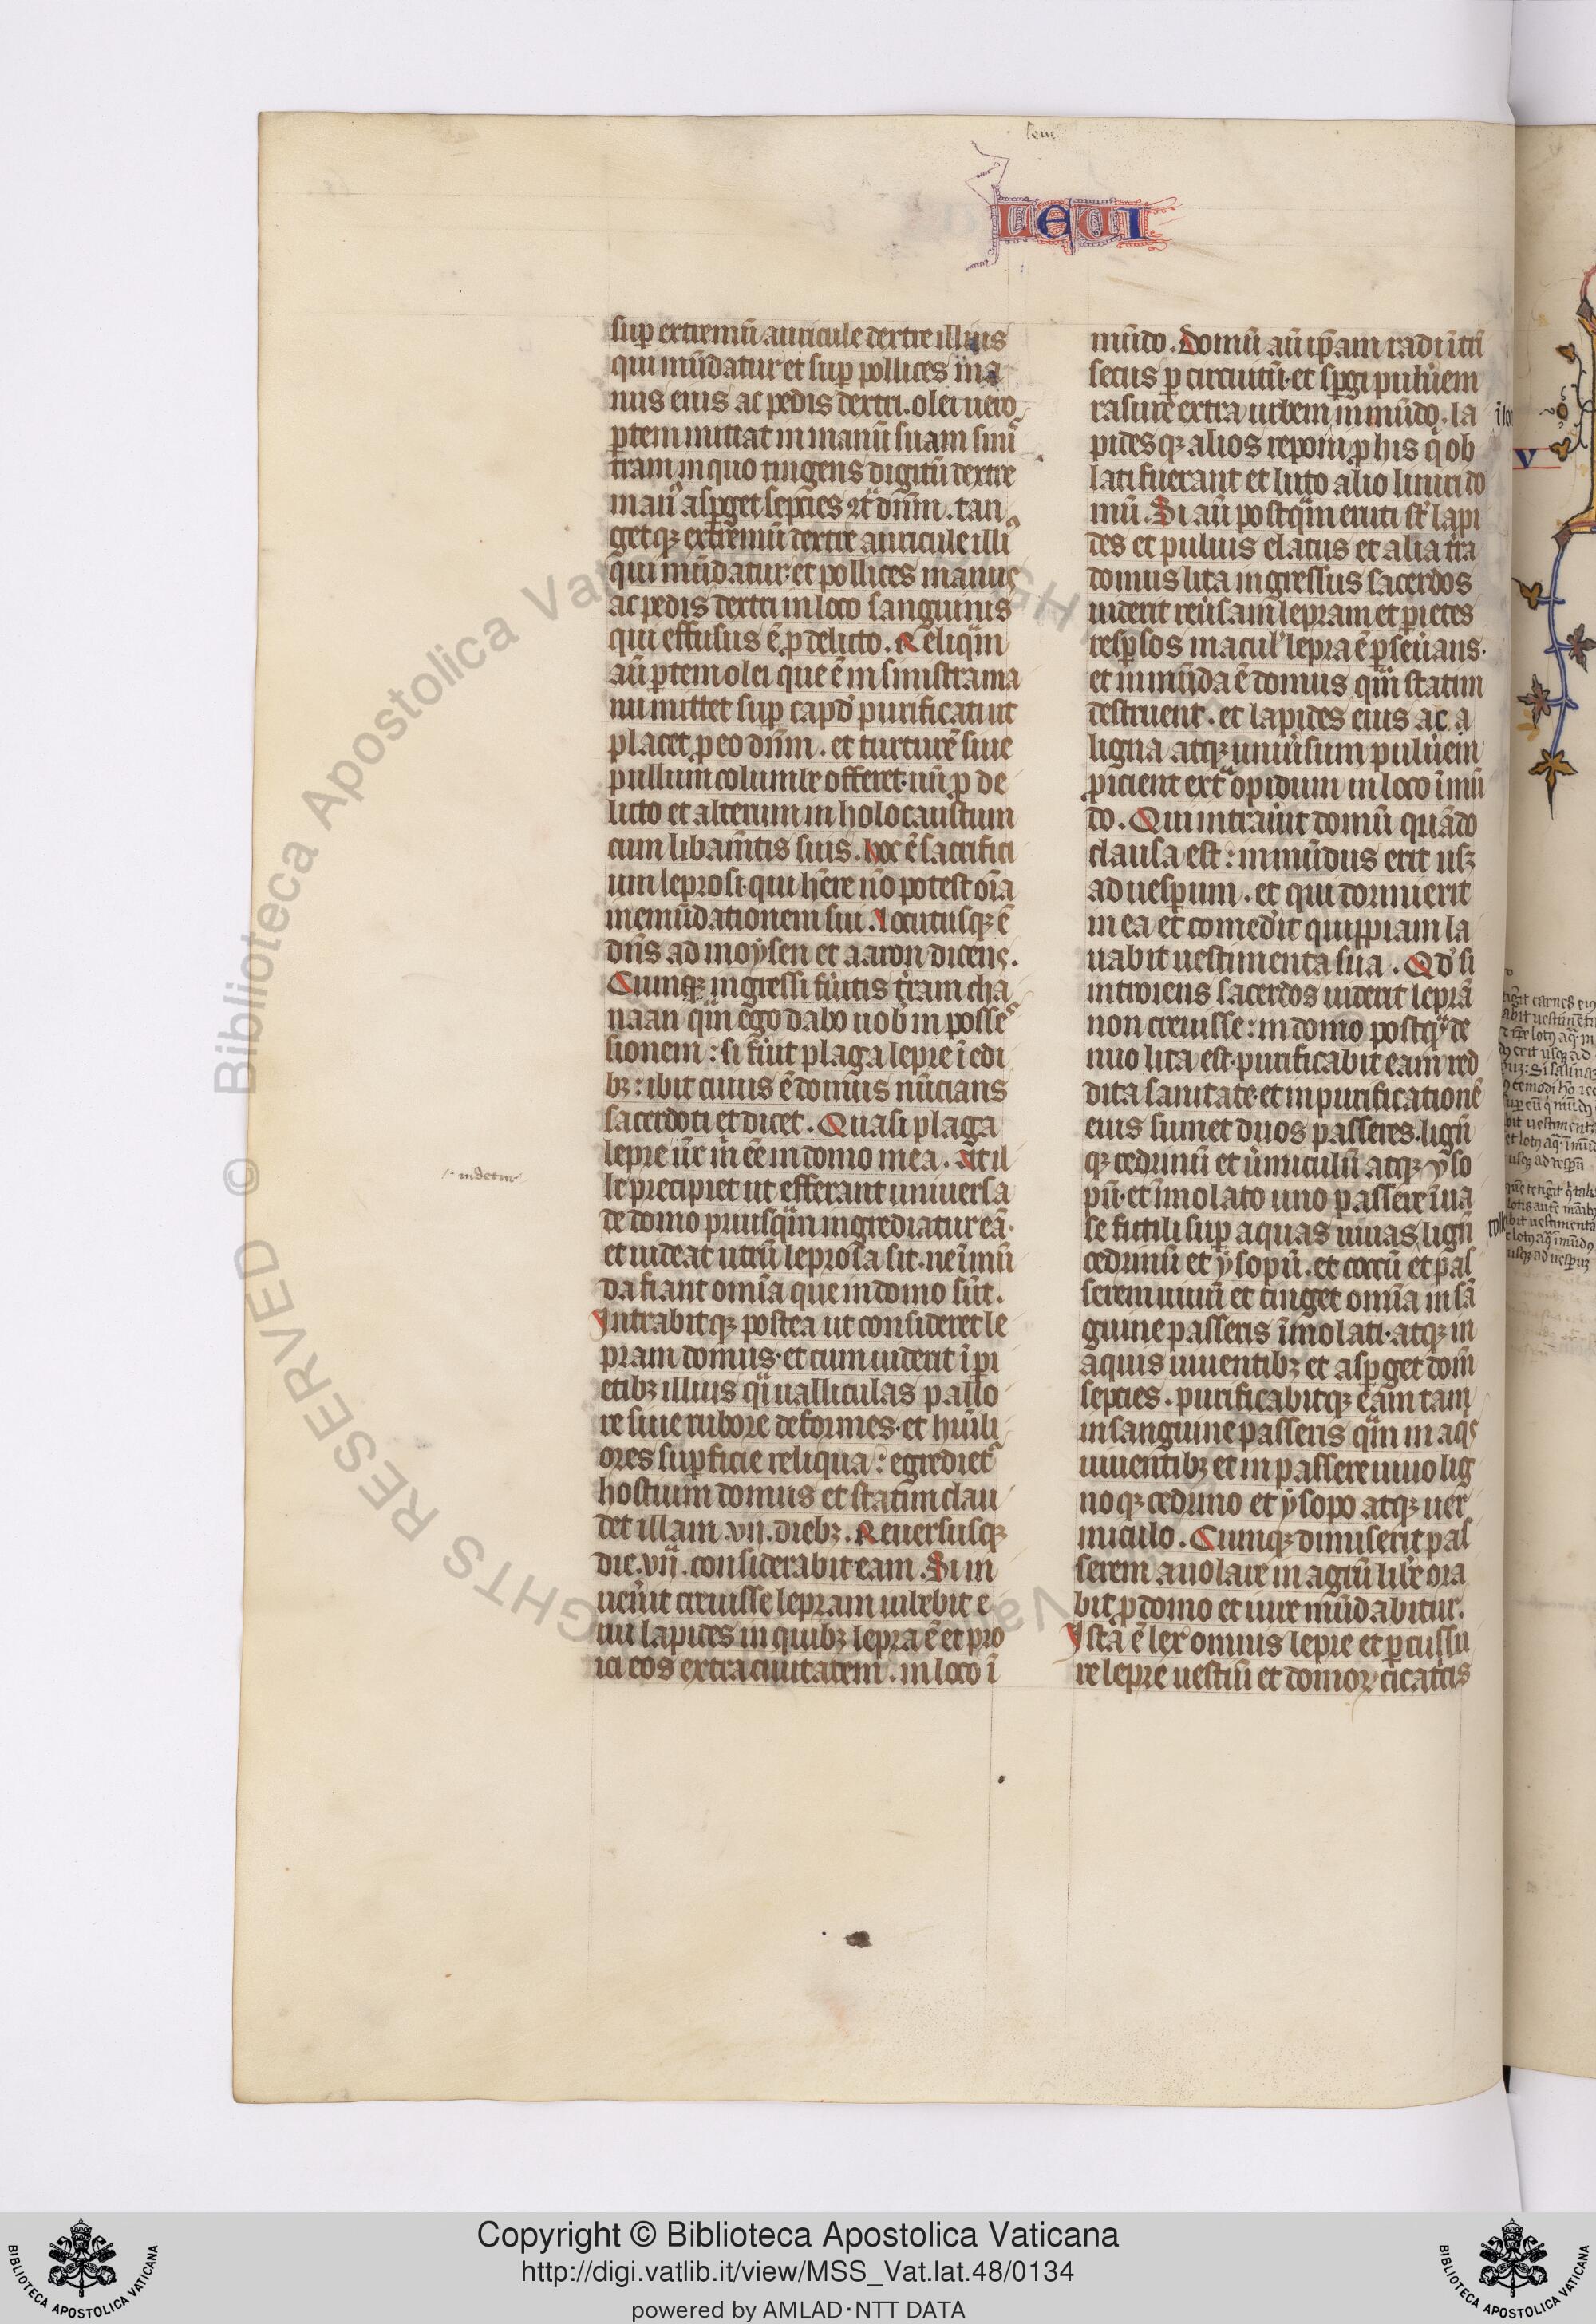 leui
LEUI
sup̱ extremū auricule dextre illius
qui mūdatur et sup̱ pollices ma
nus eius ac pedis dextri. olei uero
p̱tem mittat in manū suam sinis
tram in quo tingens digitū dextre
man᷒ asp̱get sepcies ꝯtͣ dn̄m. tan
getqꝫ extremū dextre auricule illi᷒
qui mūdatur et pollices manus
ac pedis dextri in loco sanguinis
qui effusus ē ꝓ delicto. Reliqͣm
aū p̱tem olei que ē in sinistra ma
nu mittet sup̱ capđ purificati ut
placet ꝓ eo dn̄m. et turturē siue
pullum columbe offeret. unū ꝓ de
licto et alterum in holocaustum
cum libam̄tis suis. hoc ē sacrifici
um leprosi. qui hēre nō potest oīa
in emūdationem sui. Locutusqꝫ ē
dn̄s ad moẏsen et aaron dicens.
Cumqꝫ ingressi fūitis tr̄am cha
naan qͣm ego dabo uob̄ in posses
sionem : si fūit plaga lepre ī edi
bꝫ : ibit cuius ē domus nūcians
sacerdoti et dicet. Quasi plaga
lepre ur̄ m̄ ēē in domo mea. At il
le precipiet ut efferant uniuersa
de domo priusqͣm ingrediatur eā.
et uideat utrū leprosa sit. ne īmū
da fiant omnia que in domo sūt.
Intrabitqꝫ postea ut consideret le
pram domus. et cum uiderit ī pi
etibꝫ illius qͣi ualliculas pallo
re siue rubore deformes. et hūili
ores sup̱ficie reliqua : egrediet᷑
hostium domus et statim clau
det illam .vij. diebꝫ. Reuersusqꝫ
die .vij. considerabit eam. Si in
uen̄it creuisse lepram iubebit e
rui lapides in quibꝫ lepra ē et pro
ici eos extra ciuitatem. in loco ī
·/· uidetur
mūdo. Domū aū ip̄am radi ītrī
secus p̱ circuitū. et sp̱gi puluem
rasure extra urbem in mūdo. la
pidesqꝫ alios reponi ꝓ his q̄ ob
lati fuerant et luto alio liniri do
mū. Si aū postqͣm eruti st̄ lapi
des et puluis elatus et alia tr̄a
domus lita ingressus sacerdos
uiderit reūsam lepram et pietes
resp̱sos macul̕ lepra ē p̱seūans.
et inmūda ē domus qͣm statim
destruent. et lapides eius ac
ligna atqꝫ uniūsum puluem
ꝓicient extͣ opidum in loco īmū
do. Qui intrauit domū quādo
clausa est : inmūdus erit usqꝫ
ad uesp̱um. et qui dormierit
in ea et comed̕it quippiam la
uabit uestimenta sua. Qđ si
introiens sacerdos uiderit leprā
non creuisse : in domo postqͣ de
nuo lita est. purificabit eam red
dita sanitate. et in purificationē
eius sumet duos passeres. lignū
qꝫ cedrinū et ūmiculū atqꝫ ẏso
pū. et īmolato uno passere ī ua
se fictili sup̱ aquas uiuas. lignū
cedrinū et ẏsopū. et coccū et pas
serem uiuū et tinget omnia in sā
guine passeris īmolati. atqꝫ in
aquis uiuentibꝫ et asp̱get dom̄
sepcies. purificabitqꝫ eam tam
in sanguine passeris qͣm in aqͥs
uiuentibꝫ et in passere uiuo lig
noqꝫ cedrino et ẏsopo atqꝫ uer
miculo. Cumqꝫ dimiserit pas
serem auolare in agrū libe ora
bit ꝓ domo et iure mūdabitur.
Ista ē lex omnis lepre et p̱cussu
re lepre uestiū et domoꝝ cicat̕cis
V
RESERVED © Biblioteca Apostolica Vaticana
Copyright © Biblioteca Apostolica Vaticana
http://digi.vatlib.it/view/MSS_Vat.lat.48/0134
powered by AMLAD·NTT DATA
BIBLIOTECA APOSTOLICA VATICANA
BIBLIOTECA APOSTOLICA VATICANA